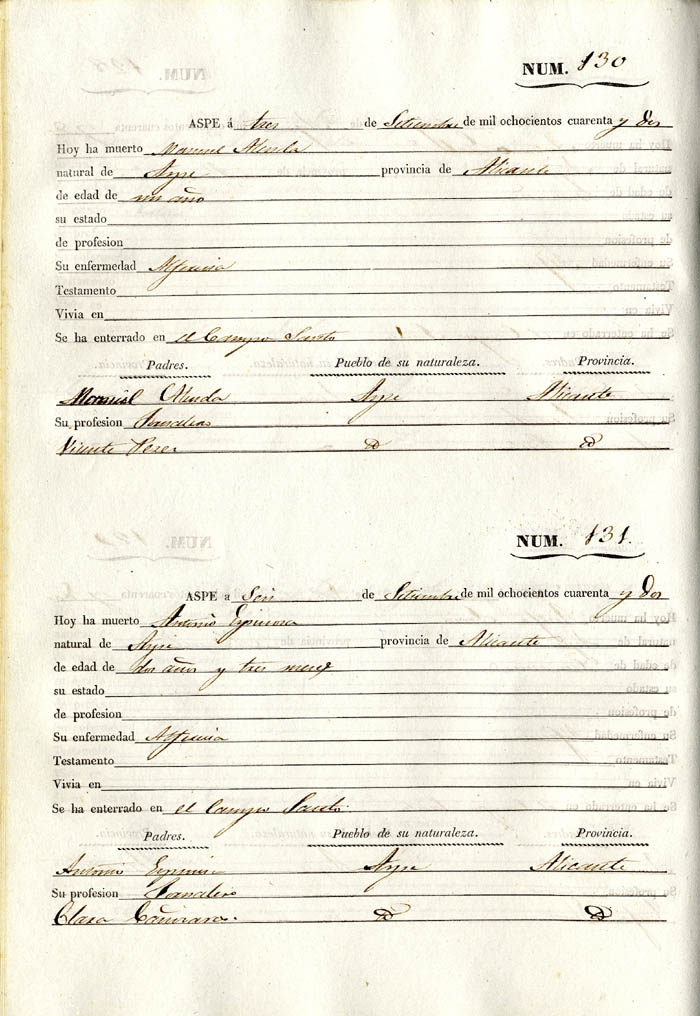 NUM. 130
ASPE á tres de Setiembre de mil ochocientos cuarenta y dos
Hoy ha muerto Manuel
natural de Aspe provincia de Alicante
de edad de un año
su estado
de profesion
Su enfermedad
Testamento
Vivia en
Se ha enterrado en el Campo Santo
Padres. Pueblo de su naturaleza. Provincia.
Aspe Alicante
Su profesion Jornalero
Vicente Perez
NUM. 131.
ASPE a Seis de Setiembre de mil ochocientos cuarenta y Dos
Hoy ha muerto Antonio Espinosa
natural de Aspe provincia de Alicante
de edad de dos años y tres meses
su estado
de profesion
Su enfermedad
Testamento
Vivia en
Se ha enterrado en el Campo Santo.
Padres. Pueblo de su naturaleza. Provincia.
Antonio Aspe Alicante
Su profesion Jornalero
Clara